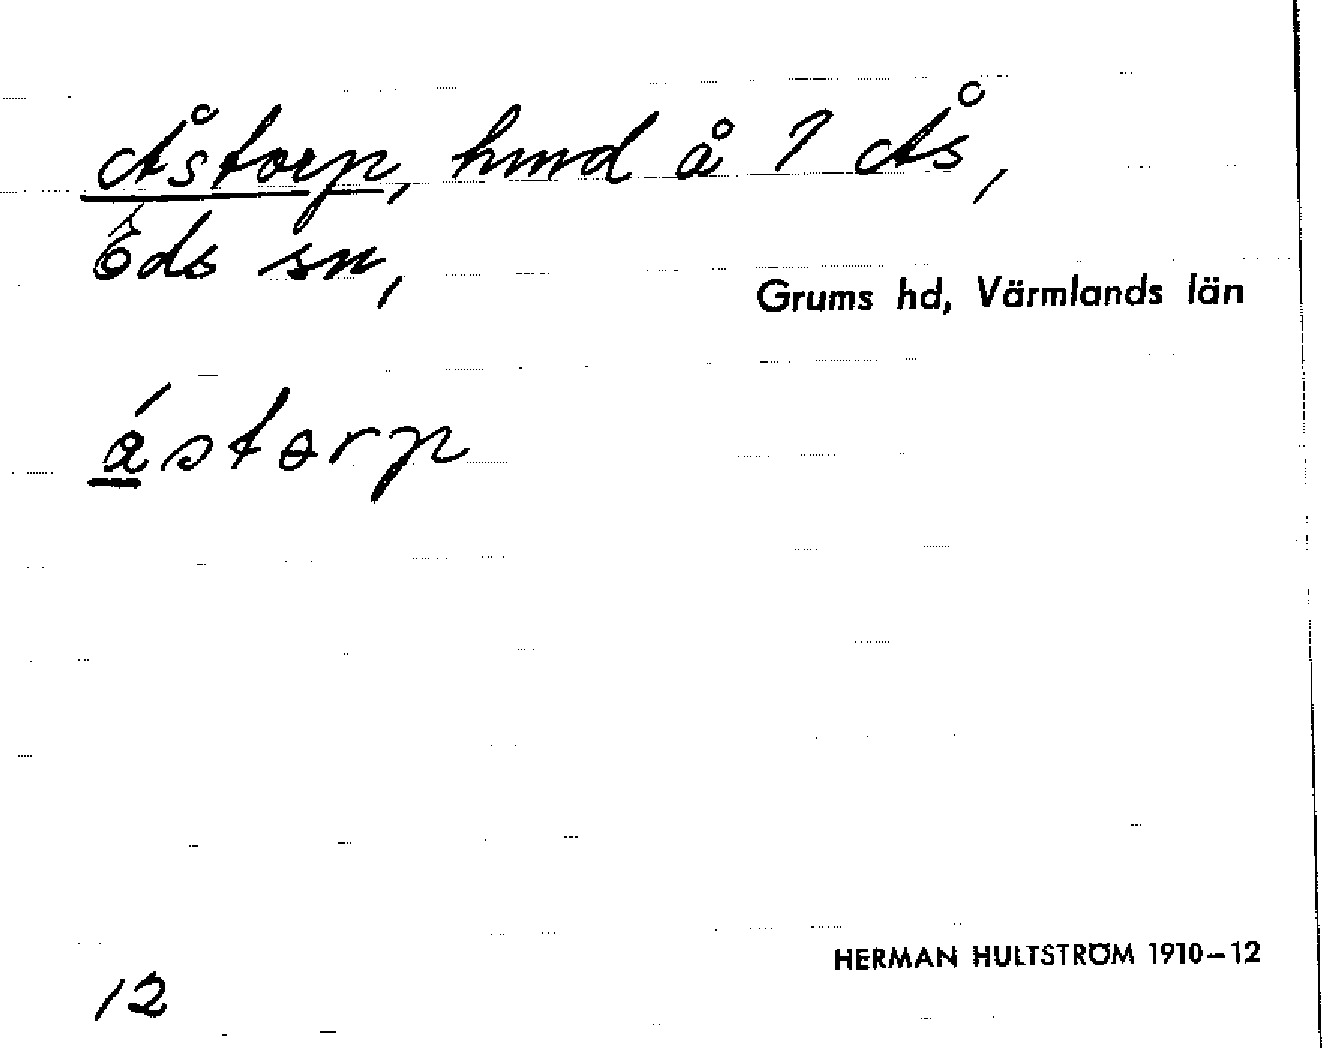 Åstorp, hmd å ? Ås,
Eds sn,
Grums hd, Värmlands län
ástɵrp
HERMAN HULTSTRÖM 1910–12
12